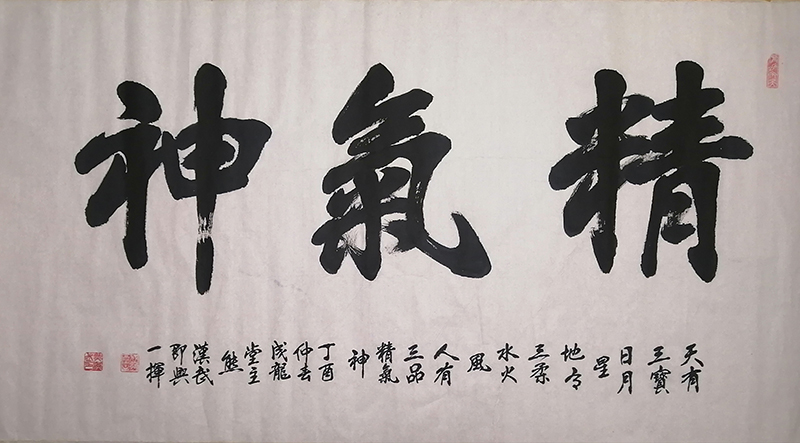 精氣神
天有
三寶
日月
星
地有
三柔
水火
風
人有
三品
精氣
神
丁酉
仲春
成龍
堂主
熊
漢武
即興
一揮